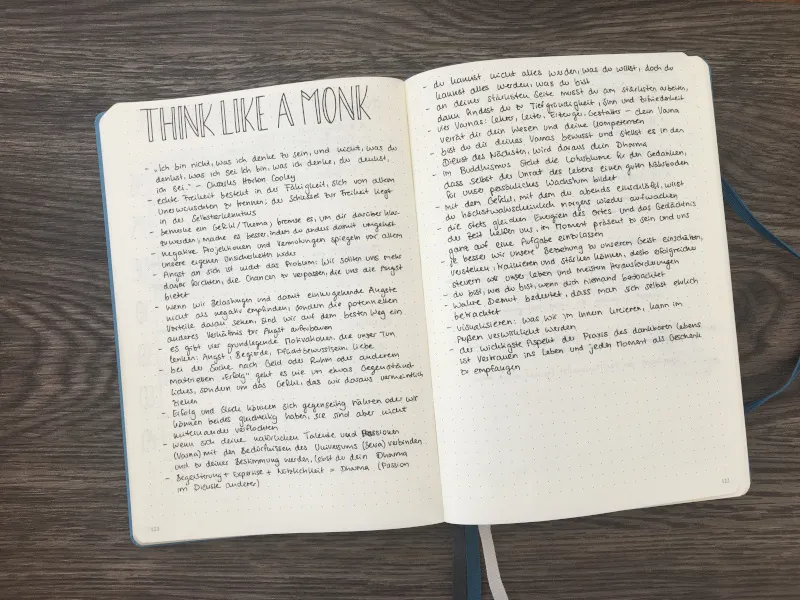 THINK LIKE A MONK
- „Ich bin nicht, was ich denke zu sein, und nicht, was du
denkst, was ich sei. Ich bin, was ich denke, du denkst,
ich sei." - Charles Horton Cooley
- echte Freiheit besteht in der Fähigkeit, sich von allem
Unerwünschten zu trennen; der Schlüssel zur Freiheit liegt
in der Selbsterkenntnis
- bemerke ein Gefühl / Thema, bremse es, um dir darüber klar
zu werden; mache es besser, indem du anders damit umgehst
- negative Projektionen und Vermutungen spiegeln vor allem
unsere eigenen Unsicherheiten wider
- Angst an sich ist nicht das Problem: Wir sollten uns mehr
davor fürchten, die Chancen zu verpassen, die uns die Angst
bietet
- wenn wir Belastungen und damit einhergehende Ängste
nicht als negativ empfinden, sondern die potenziellen
Vorteile daran sehen, sind wir auf dem besten Weg ein
anderes Verhältnis zur Angst aufzubauen
- es gibt vier grundlegende Motivationen, die unser Tun
lenken: Angst, Begierde, Pflichtbewusstsein, Liebe
- bei der Suche nach Geld oder Ruhm oder anderem
materiellen „Erfolg" geht es nie um etwas Gegenständ-
liches, sondern um das Gefühl, das wir daraus vermeintlich
ziehen
- Erfolg und Glück können sich gegenseitig nähren oder wir
können beides gleichzeitig haben, sie sind aber nicht
miteinander verflochten
- wenn sich deine natürlichen Talente und Passionen
(Varna) mit den Bedürfnissen des Universums (Seva) verbinden
und zu deiner Bestimmung werden, lebst du dein Dharma
- Begeisterung + Expertise + Nützlichkeit = Dharma (Passion
im Dienste anderer)
122
- du kannst nicht alles werden, was du willst, doch du
kannst alles werden, was du bist
- an deiner stärksten Seite musst du am stärksten arbeiten,
dann findest du zu Tiefgründigkeit, Sinn und Zufriedenheit
- vier Varnas: Lehrer, Leiter, Erzeuger, Gestalter - dein Varna
verrät dir dein Wesen und deine Kompetenzen
- bist du dir deines Varnas bewusst und stellst es in den
Dienst des Nächsten, wird daraus dein Dharma
- im Buddhismus steht die Lotusblume für den Gedanken,
dass selbst der Unrat des Lebens einen guten Nährboden
für unser persönliches Wachstum bildet
- mit dem Gefühl, mit dem du abends einschläfst, wirst
du höchstwahrscheinlich morgens wieder aufwachen
- die stets gleichen Energien des Ortes und das Gedächtnis
der Zeit helfen uns, im Moment präsent zu sein und uns
ganz auf eine Aufgabe einzulassen
- je besser wir unsere Beziehung zu unserem Geist einschätzen,
verstehen, trainieren und stärken können, desto erfolgreicher
steuern wir unser Leben und meistern Herausforderungen
- du bist, wer du bist, wenn dich niemand beobachtet
- wahre Demut bedeutet, dass man sich selbst ehrlich
betrachtet
- visualisieren: was wir im Innern kreieren, kann im
Außen verwirklicht werden
- der wichtigste Aspekt der Praxis des dankbaren Lebens
ist Vertrauen ins Leben und jeden Moment als Geschenk
zu empfangen
123